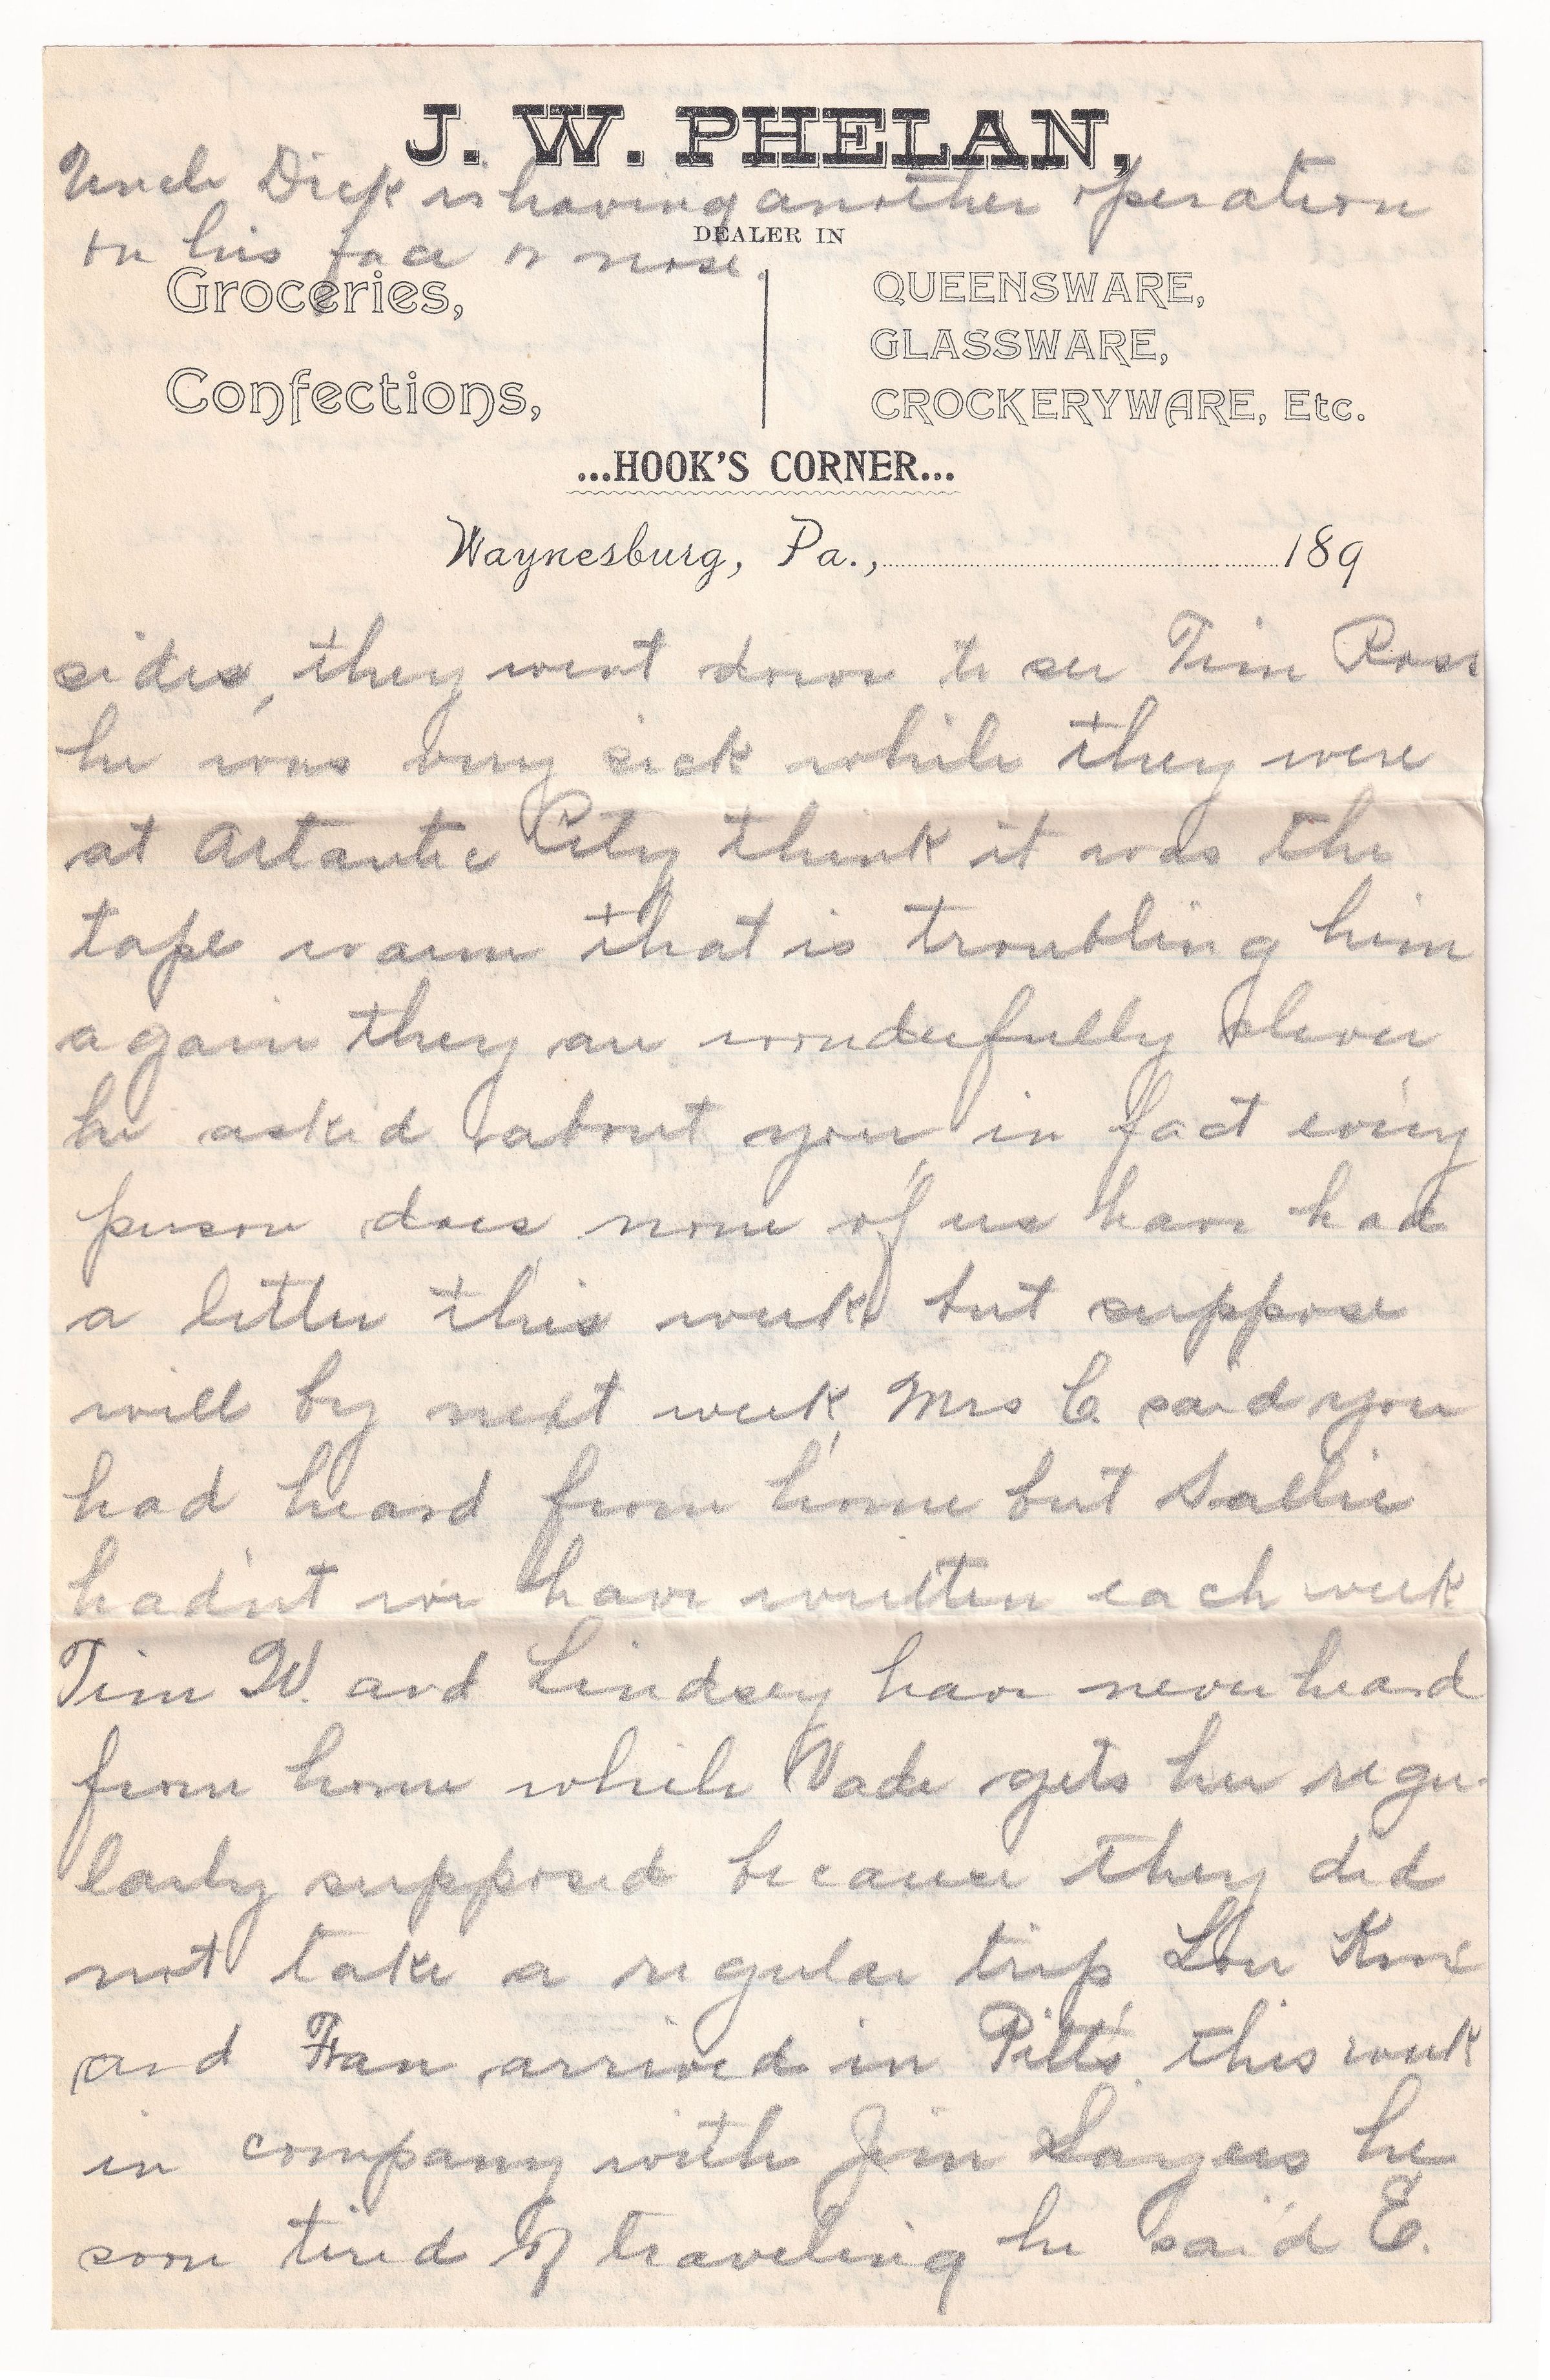 J. W. PHELAN,
Uncle Dick is having another operation
DEALER IN
on his face or nose.
Groceries,
Confections,
QUEENSWARE,
GLASSWARE,
CROCKERYWARE, Etc.
...HOOK'S CORNER...
Waynesburg, Pa., 189
sides, they went down to see Tim Ross
he was very sick while they were
at Artantic City think it was the
tape warm that is troubling him
again they are wonderfully clever
he asked about you, in fact every
person does none of us have had
a letter this week but suppose
will by next week, Mrs C. said you
had heard from home but Sallie
had'nt we have written each week
Tim W. and Lindsey have never heard
from home while Vade gets her regu-
larly supposed because they did
not take a regular trip, Lou
and Fran arrived in Pitts. this week
in company with Jim Sayers he
soon tired of traveling he said E.